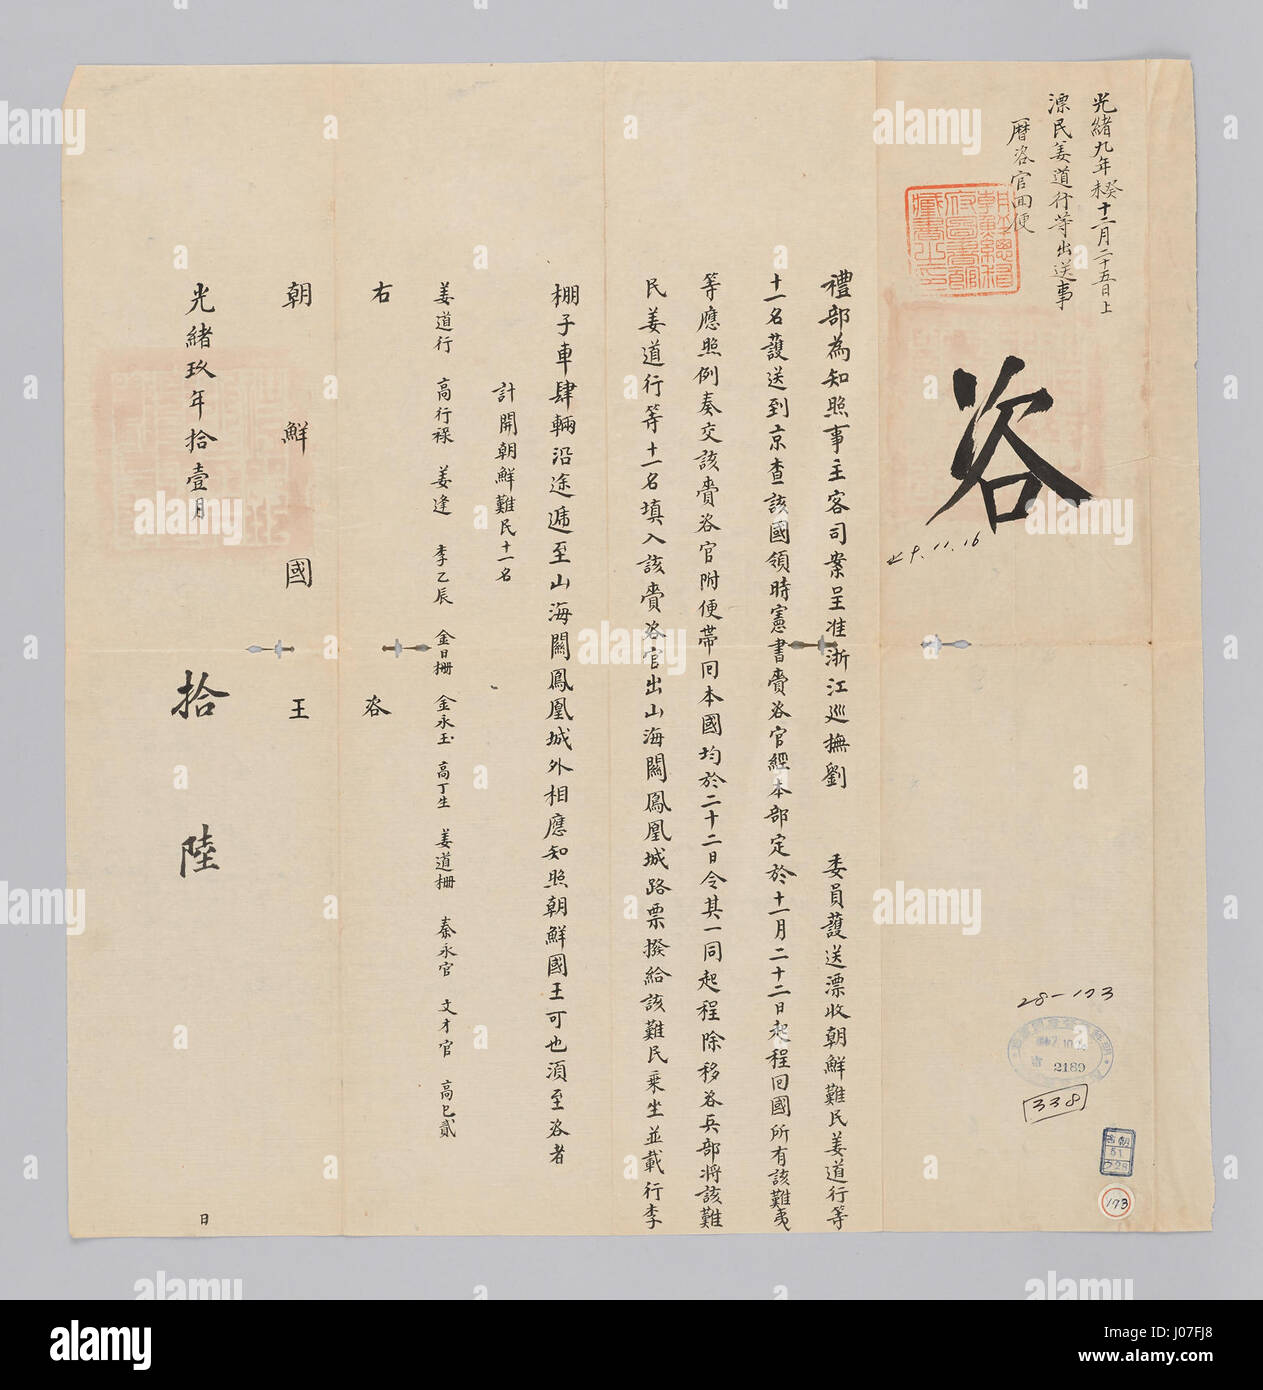 光緒九年癸未十二月二十五日上
漂民姜道行等出送事
曆咨官回便
朝鮮總督府圖書館藏書之印
咨
and 9.11.16
禮部為知照事主客司案呈准浙江巡撫劉 委員護送漂收朝鮮難民姜道行等
十一名護送到京查該國領時憲書賫咨官經本部定於十一月二十二日起程回國所有該難夷
等應照例奏交該賫咨官附便帶回本國均於二十二日令其一同起程除移咨兵部將該難
民姜道行等十一名填入該賫咨官出山海關鳳凰城路票撥給該難民乘坐並載行李
棚子車肆輛沿途遞至山海關鳳凰城外相應知照朝鮮國王可也須至咨者
計開朝鮮難民十一名
姜道行 高行祿 姜逢 李乙辰 金日珊 金永玉 高丁生 姜道珊 秦永官 文才官 高已貳
右 咨
朝鮮國王
光緒玖年拾壹月 拾陸 日
28-173
10
2189
338
朝
51
228
173
alamy
Image ID: J07FJ8
www.alamy.com